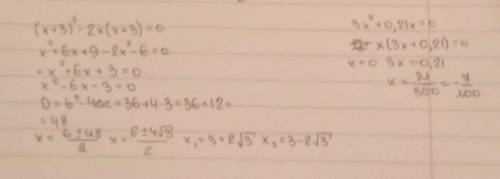 (x+3)²-2x(x+3)=0
x²+6x+9-2x²-6=0
-x²+6x+3=0
x²-6x-3=0
D=b²-4ac=36+4·3=36+12=
=48
x=(6±48)/2 x=(6±4√3)/2 x₁=3+2√3 x₂=3-2√3
3x²+0,21x=0
x(3x+0,21)=0
x=0 3x=-0,21
x=21/300=-7/100